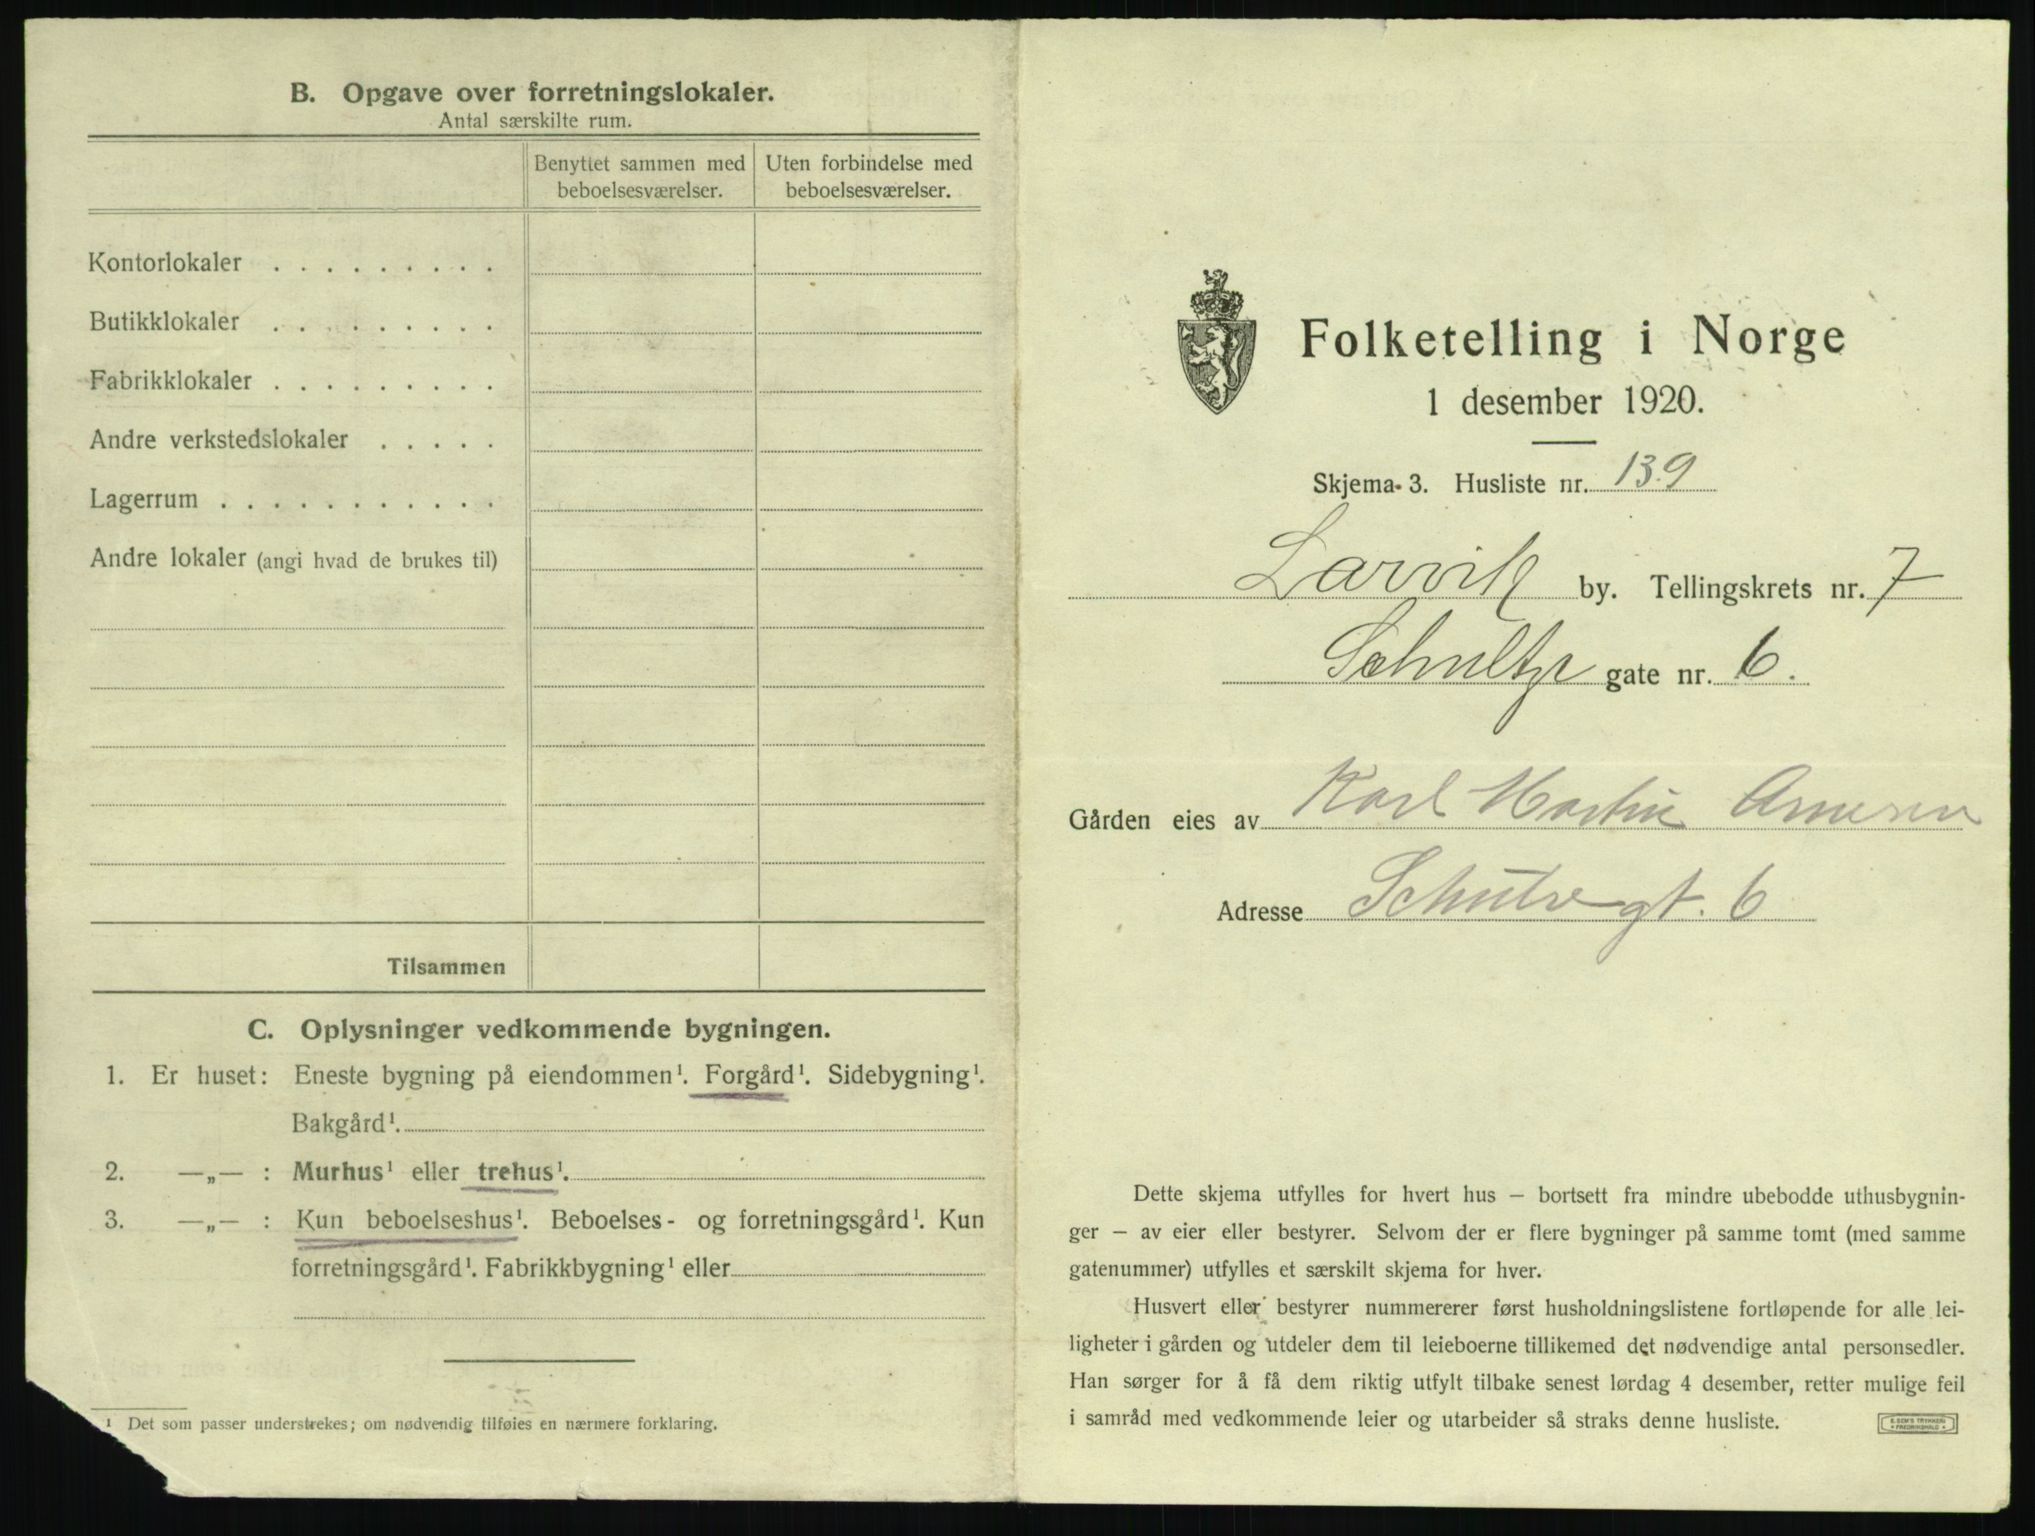 B. Opgave over forretningslokaler.
Antal særskilte rum.
Benyttet sammen med beboelsesværelser.
Uten forbindelse med beboelsesværelser.
Kontorlokaler . . . . . . . . .
Butikklokaler . . . . . . . . .
Fabrikklokaler . . . . . . . . .
Andre verkstedslokaler . . . . .
Lagerrum . . . . . . . . . . .
Andre lokaler (angi hvad de brukes til)
Tilsammen
C. Oplysninger vedkommende bygningen.
1. Er huset: Eneste bygning på eiendommen¹. Forgård¹. Sidebygning¹.
Bakgård¹.
2. —„— : Murhus¹ eller trehus¹.
3. —„— : Kun beboelseshus¹. Beboelses- og forretningsgård¹. Kun
forretningsgård¹. Fabrikkbygning¹ eller
¹ Det som passer understrekes; om nødvendig tilføies en nærmere forklaring.
Folketelling i Norge
1 desember 1920.
Skjema 3. Husliste nr. 139
Larvik by. Tellingskrets nr. 7
Schultz gate nr. 6.
Gården eies av Karl Martin Arnesen
Adresse Schultzegt. 6
Dette skjema utfylles for hvert hus – bortsett fra mindre ubebodde uthusbygnin-
ger – av eier eller bestyrer. Selvom der er flere bygninger på samme tomt (med samme
gatenummer) utfylles et særskilt skjema for hver.
Husvert eller bestyrer nummererer først husholdningslistene fortløpende for alle lei-
ligheter i gården og utdeler dem til leieboerne tillikemed det nødvendige antal personsedler.
Han sørger for å få dem riktig utfylt tilbake senest lørdag 4 desember, retter mulige feil
i samråd med vedkommende leier og utarbeider så straks denne husliste.
E. SEM'S TRYKKERI
• FREDRIKSHALD •